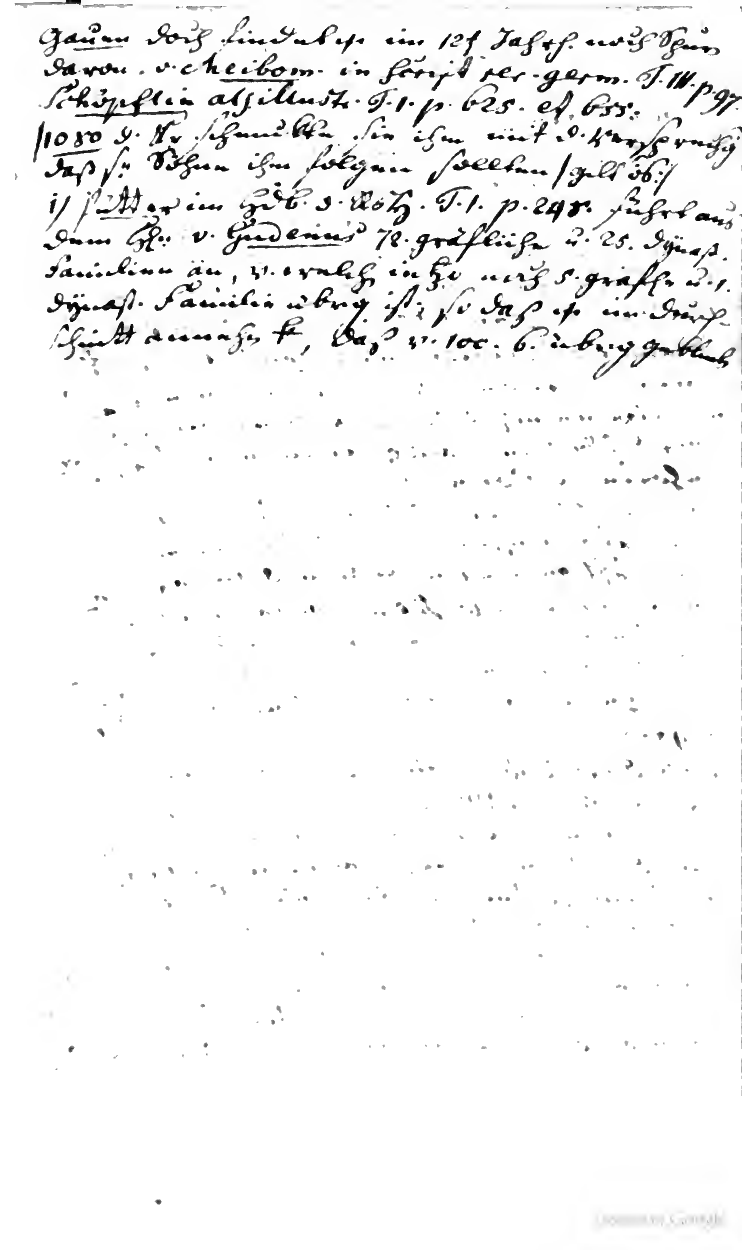 Gauen doch findet sich im 12t Jahrh. noch Spur
davon. v. Meibom. in script. rer. germ. T. III. p. 97.
Schöpflin als. illustr. T. 1. p. 625. et 655.
/1080 d. sie ihm mit d.
daß se Söhne ihm folgen sollten /
1/ Pütter im Hdb. d. T. 1. p. 248. führt aus
dem v. Gudenus 72. gräfliche u. 25. dynast.
Familien an, v. welch noch 5. gräfl. u. 1.
dynast. Familie übrig ist; so daß im durch-
schnitt annehm k, daß v. 100. 6. übrig geblieb